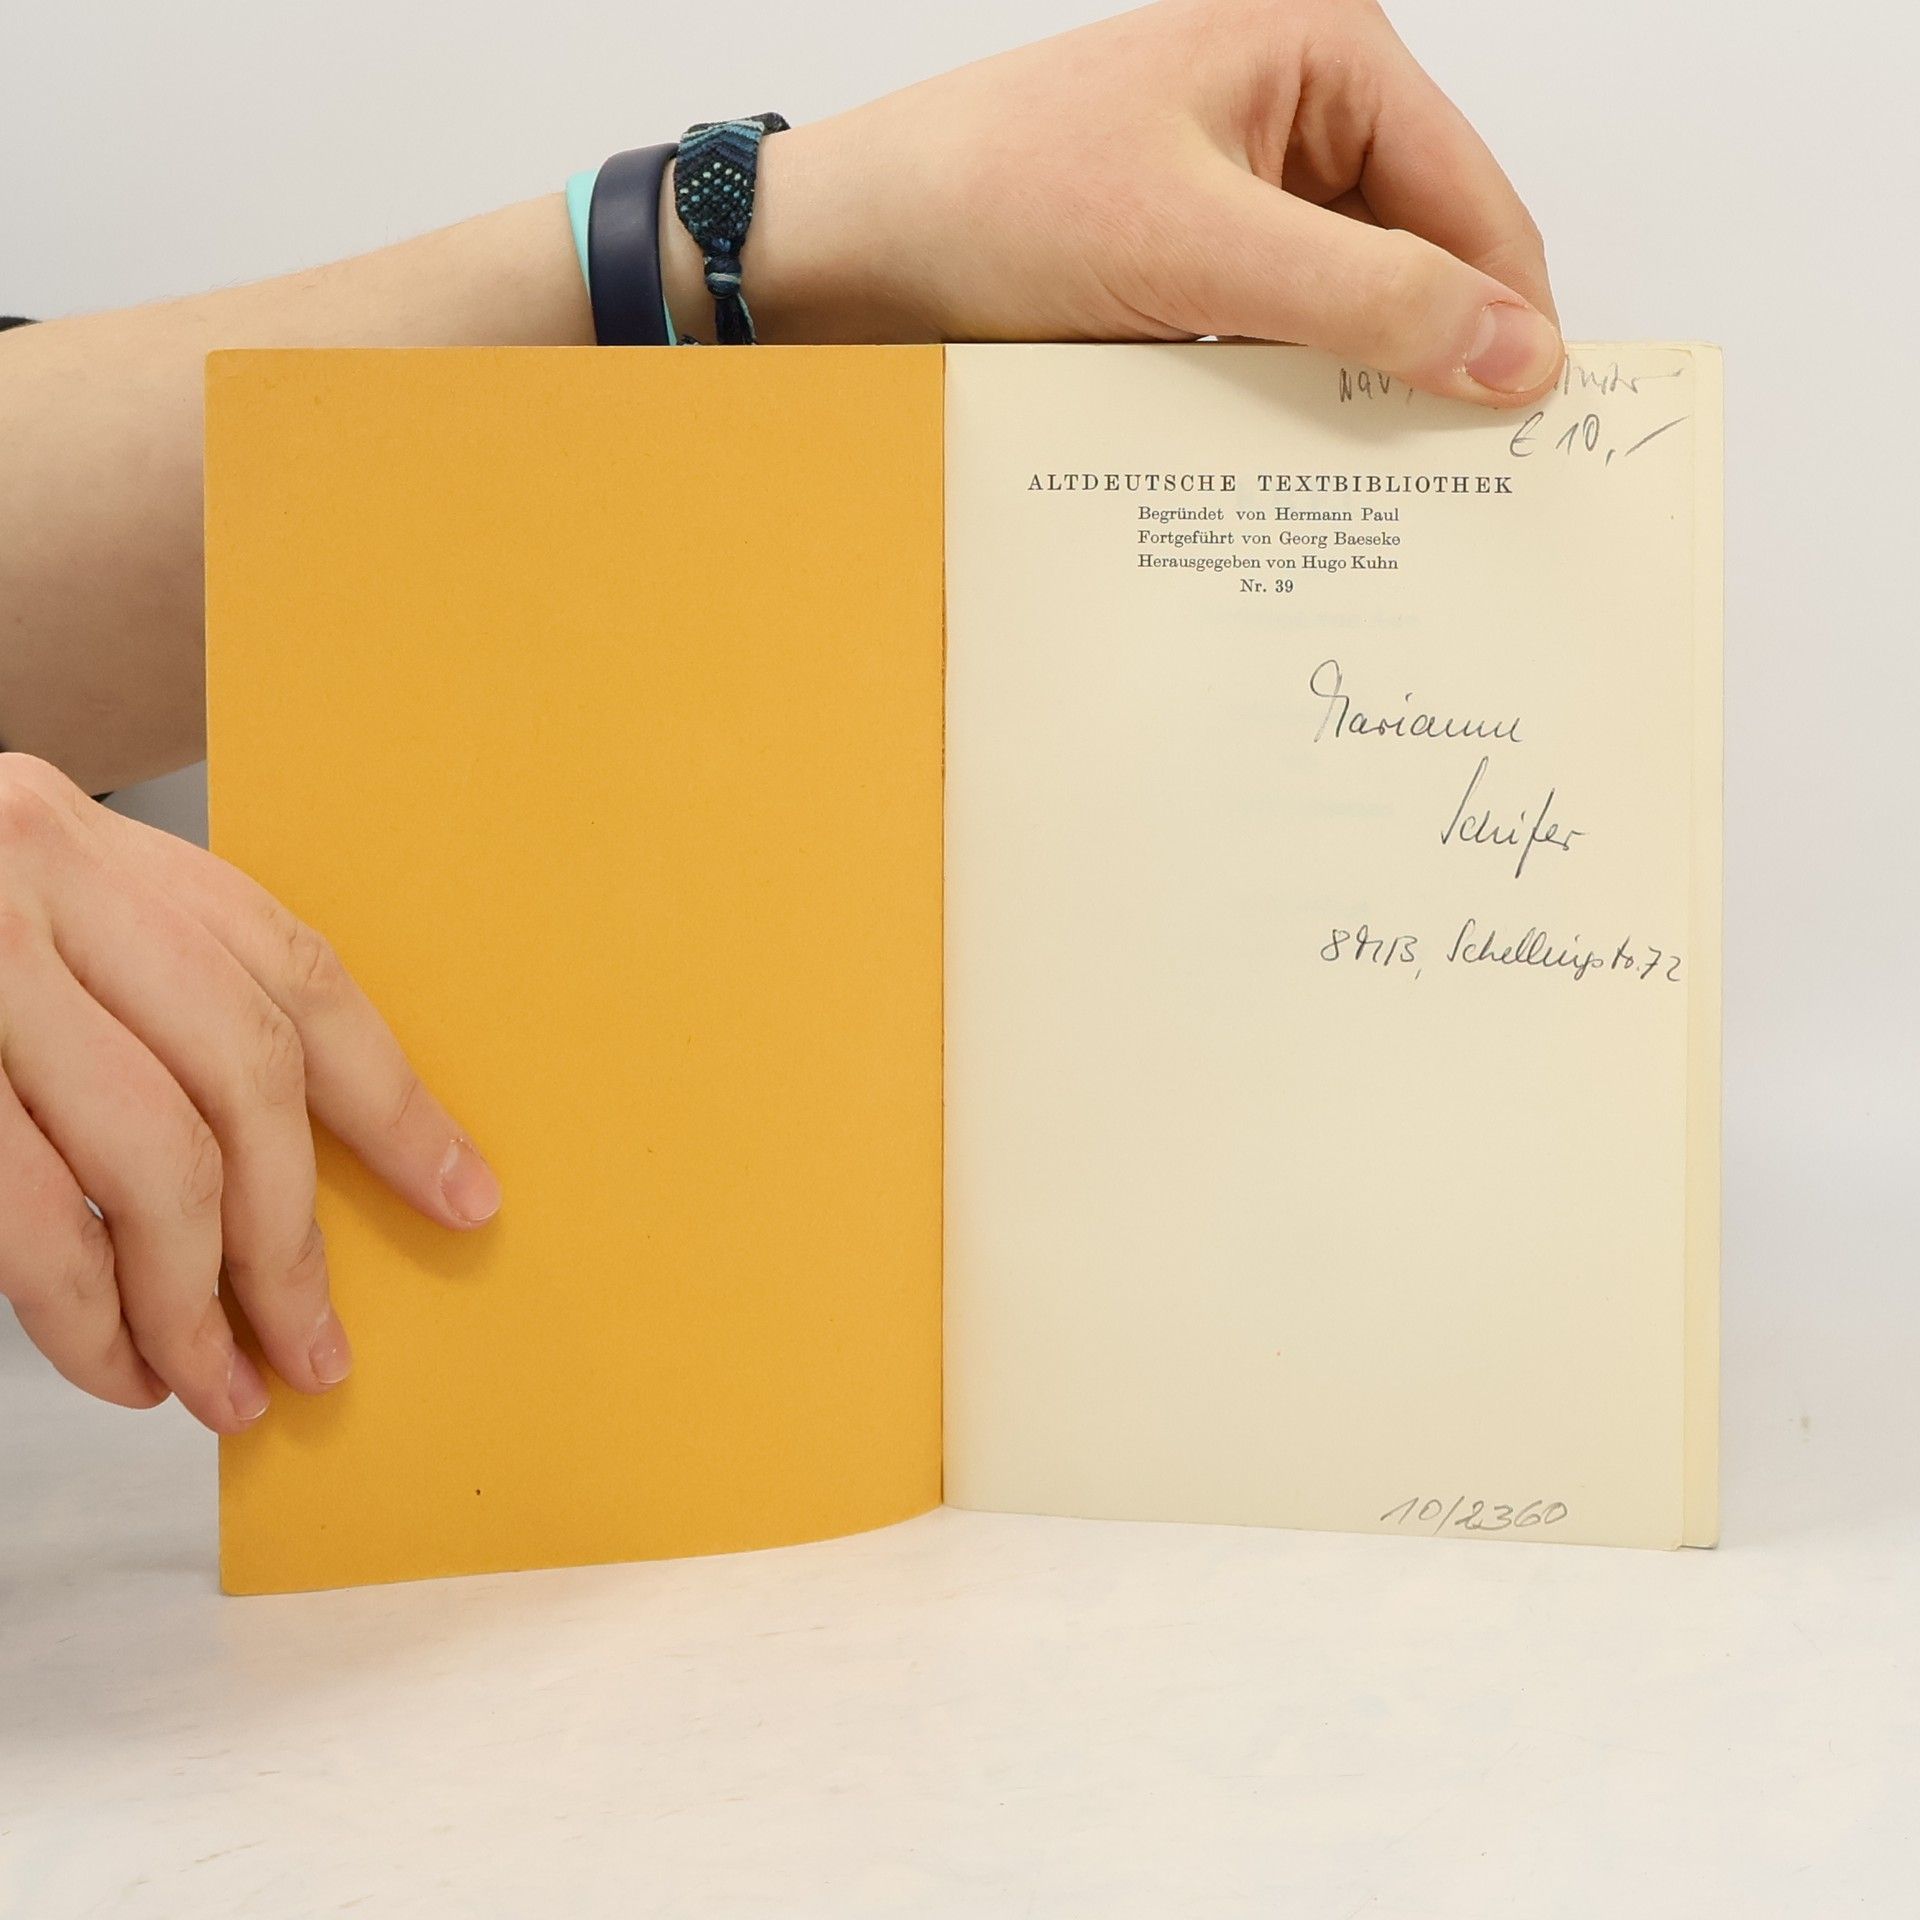 € 10,-
ALTDEUTSCHE TEXTBIBLIOTHEK
Begründet von Hermann Paul
Fortgeführt von Georg Baeseke
Herausgegeben von Hugo Kuhn
Nr. 39
Marianne
Schifer
8 MB, Schellingstr. 72
10/2360